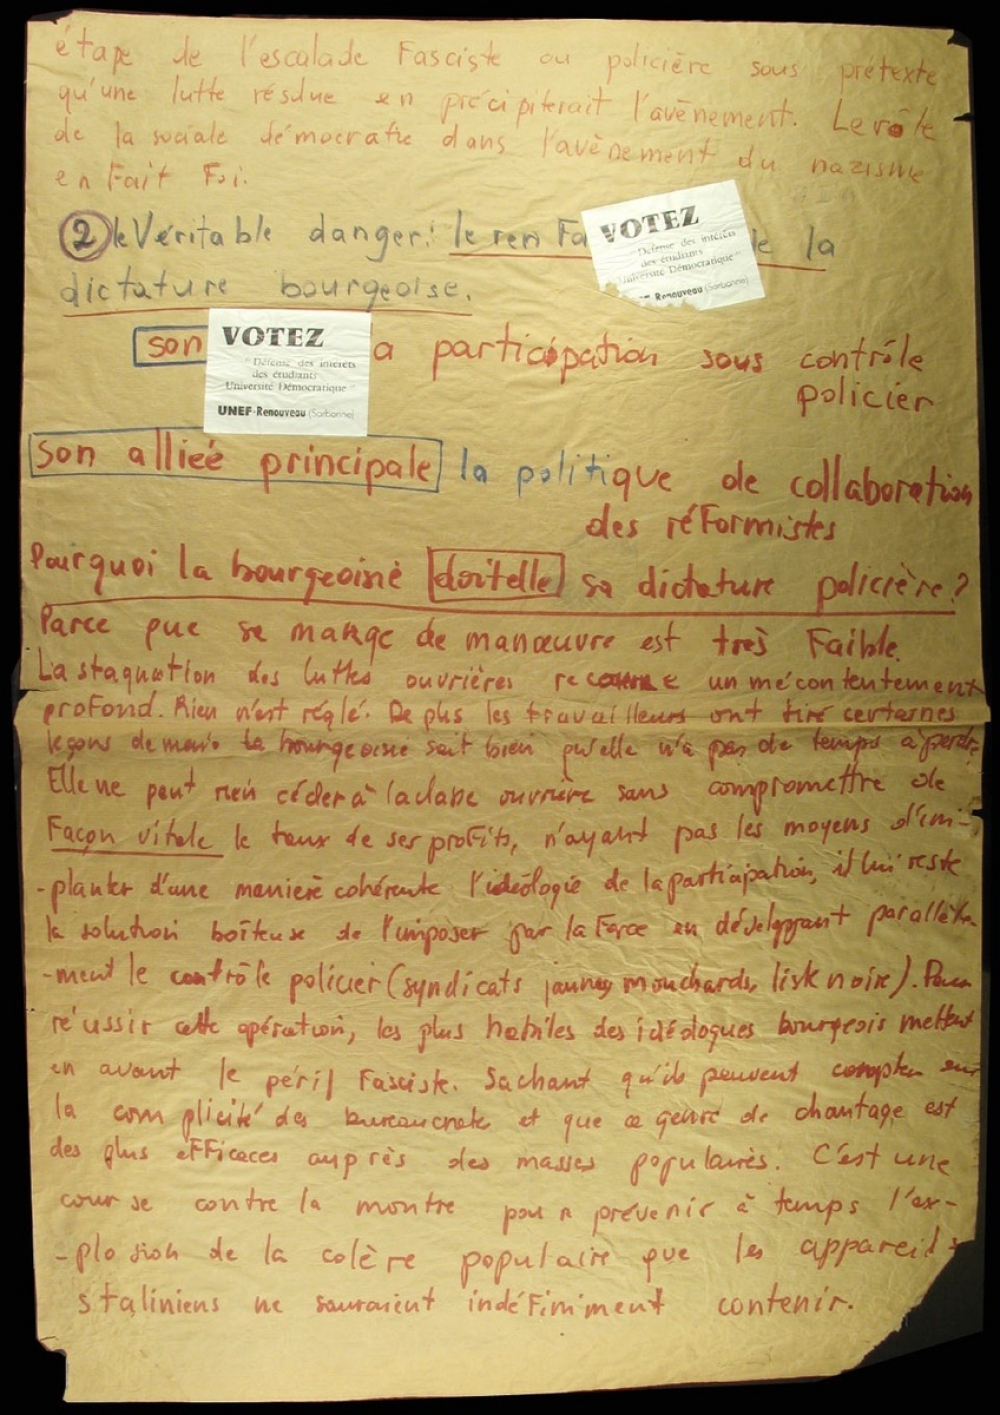 étape de l'escalade Fasciste ou policière sous prétexte
qu'une lutte résolue en précipiterait l'avènement. Le rôle
de la sociale démocratie dans l'avènement du nazisme
en Fait Foi.
② le Véritable danger: le ren Fo le la
dictature bourgeoise.
VOTEZ
"Défense des intérêts
des étudiants
Université Démocratique"
Renouveau (Sorbonne)
son a participation sous contrôle
policier
VOTEZ
"Défense des intérêts
des étudiants
Université Démocratique"
UNEF-Renouveau (Sorbonne)
son alliée principale la politique de collaboration
des réFormistes
Pourquoi la bourgeoisie doit elle sa dictature policière?
Parce que sa marge de manœuvre est très Faible.
La stagnation des luttes ouvrières recouvre un mécontentement
profond. Rien n'est réglé. De plus les travailleurs ont tiré certaines
leçons de mai. La bourgeoisie sait bien qu'elle n'a pas de temps à perdre.
Elle ne peut rien céder à la classe ouvrière sans compromettre de
Façon vitale le taux de ses profits, n'ayant pas les moyens d'im-
-planter d'une manière cohérente l'idéologie de la participation, il lui reste
la solution boîteuse de l'imposer par la Force en développant parallèle
-ment le contrôle policier (syndicats jaunes, mouchards, liste noire). Pour
réussir cette opération, les plus habiles des idéologues bourgeois mettent
en avant le péril Fasciste. Sachant qu'ils peuvent compter sur
la complicité des bureaucrates et que ce genre de chantage est
des plus eFFicaces auprès des masses populaires. C'est une
course contre la montre pour prévenir à temps l'ex-
-plosion de la colère populaire que les appareils
staliniens ne sauraient indéFiniment contenir.